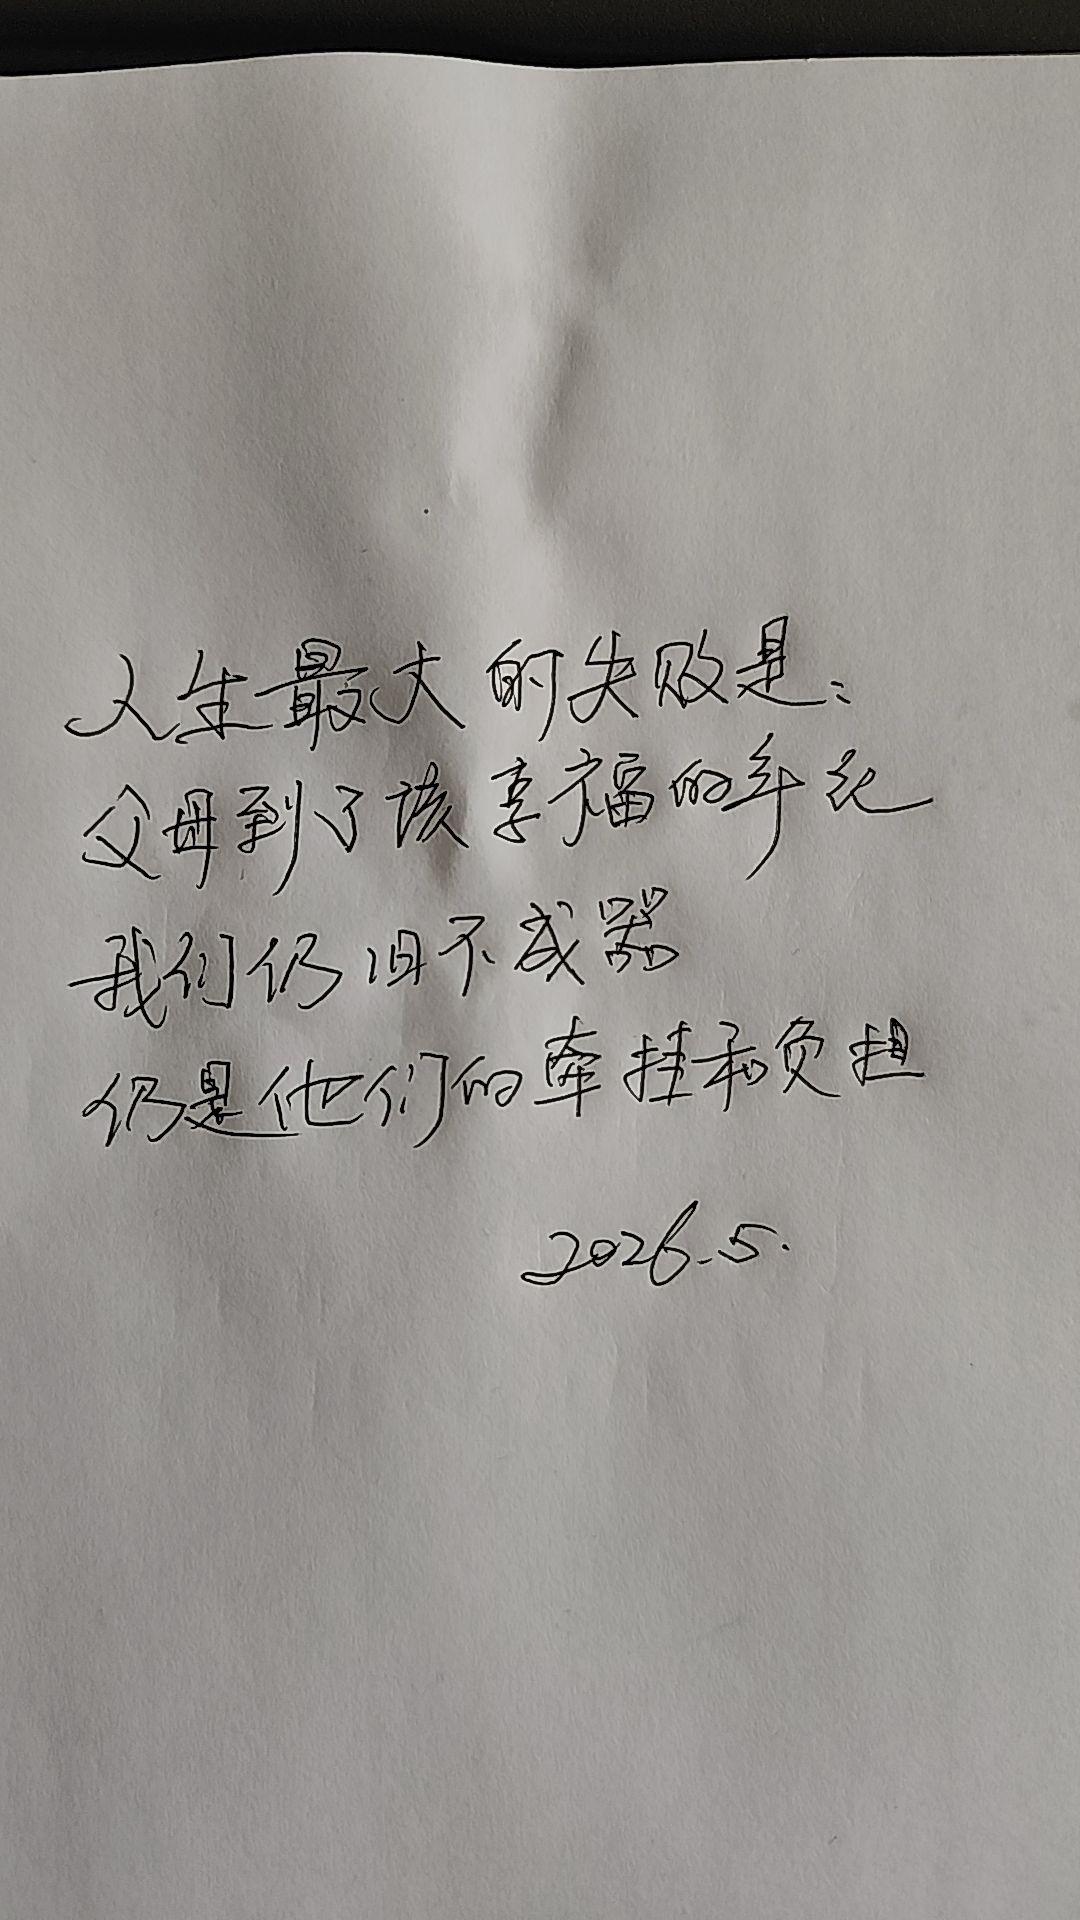 人生最大的失败是：
父母到了该享福的年纪
我们仍旧不成器
仍是他们的牵挂和负担
2026.5.